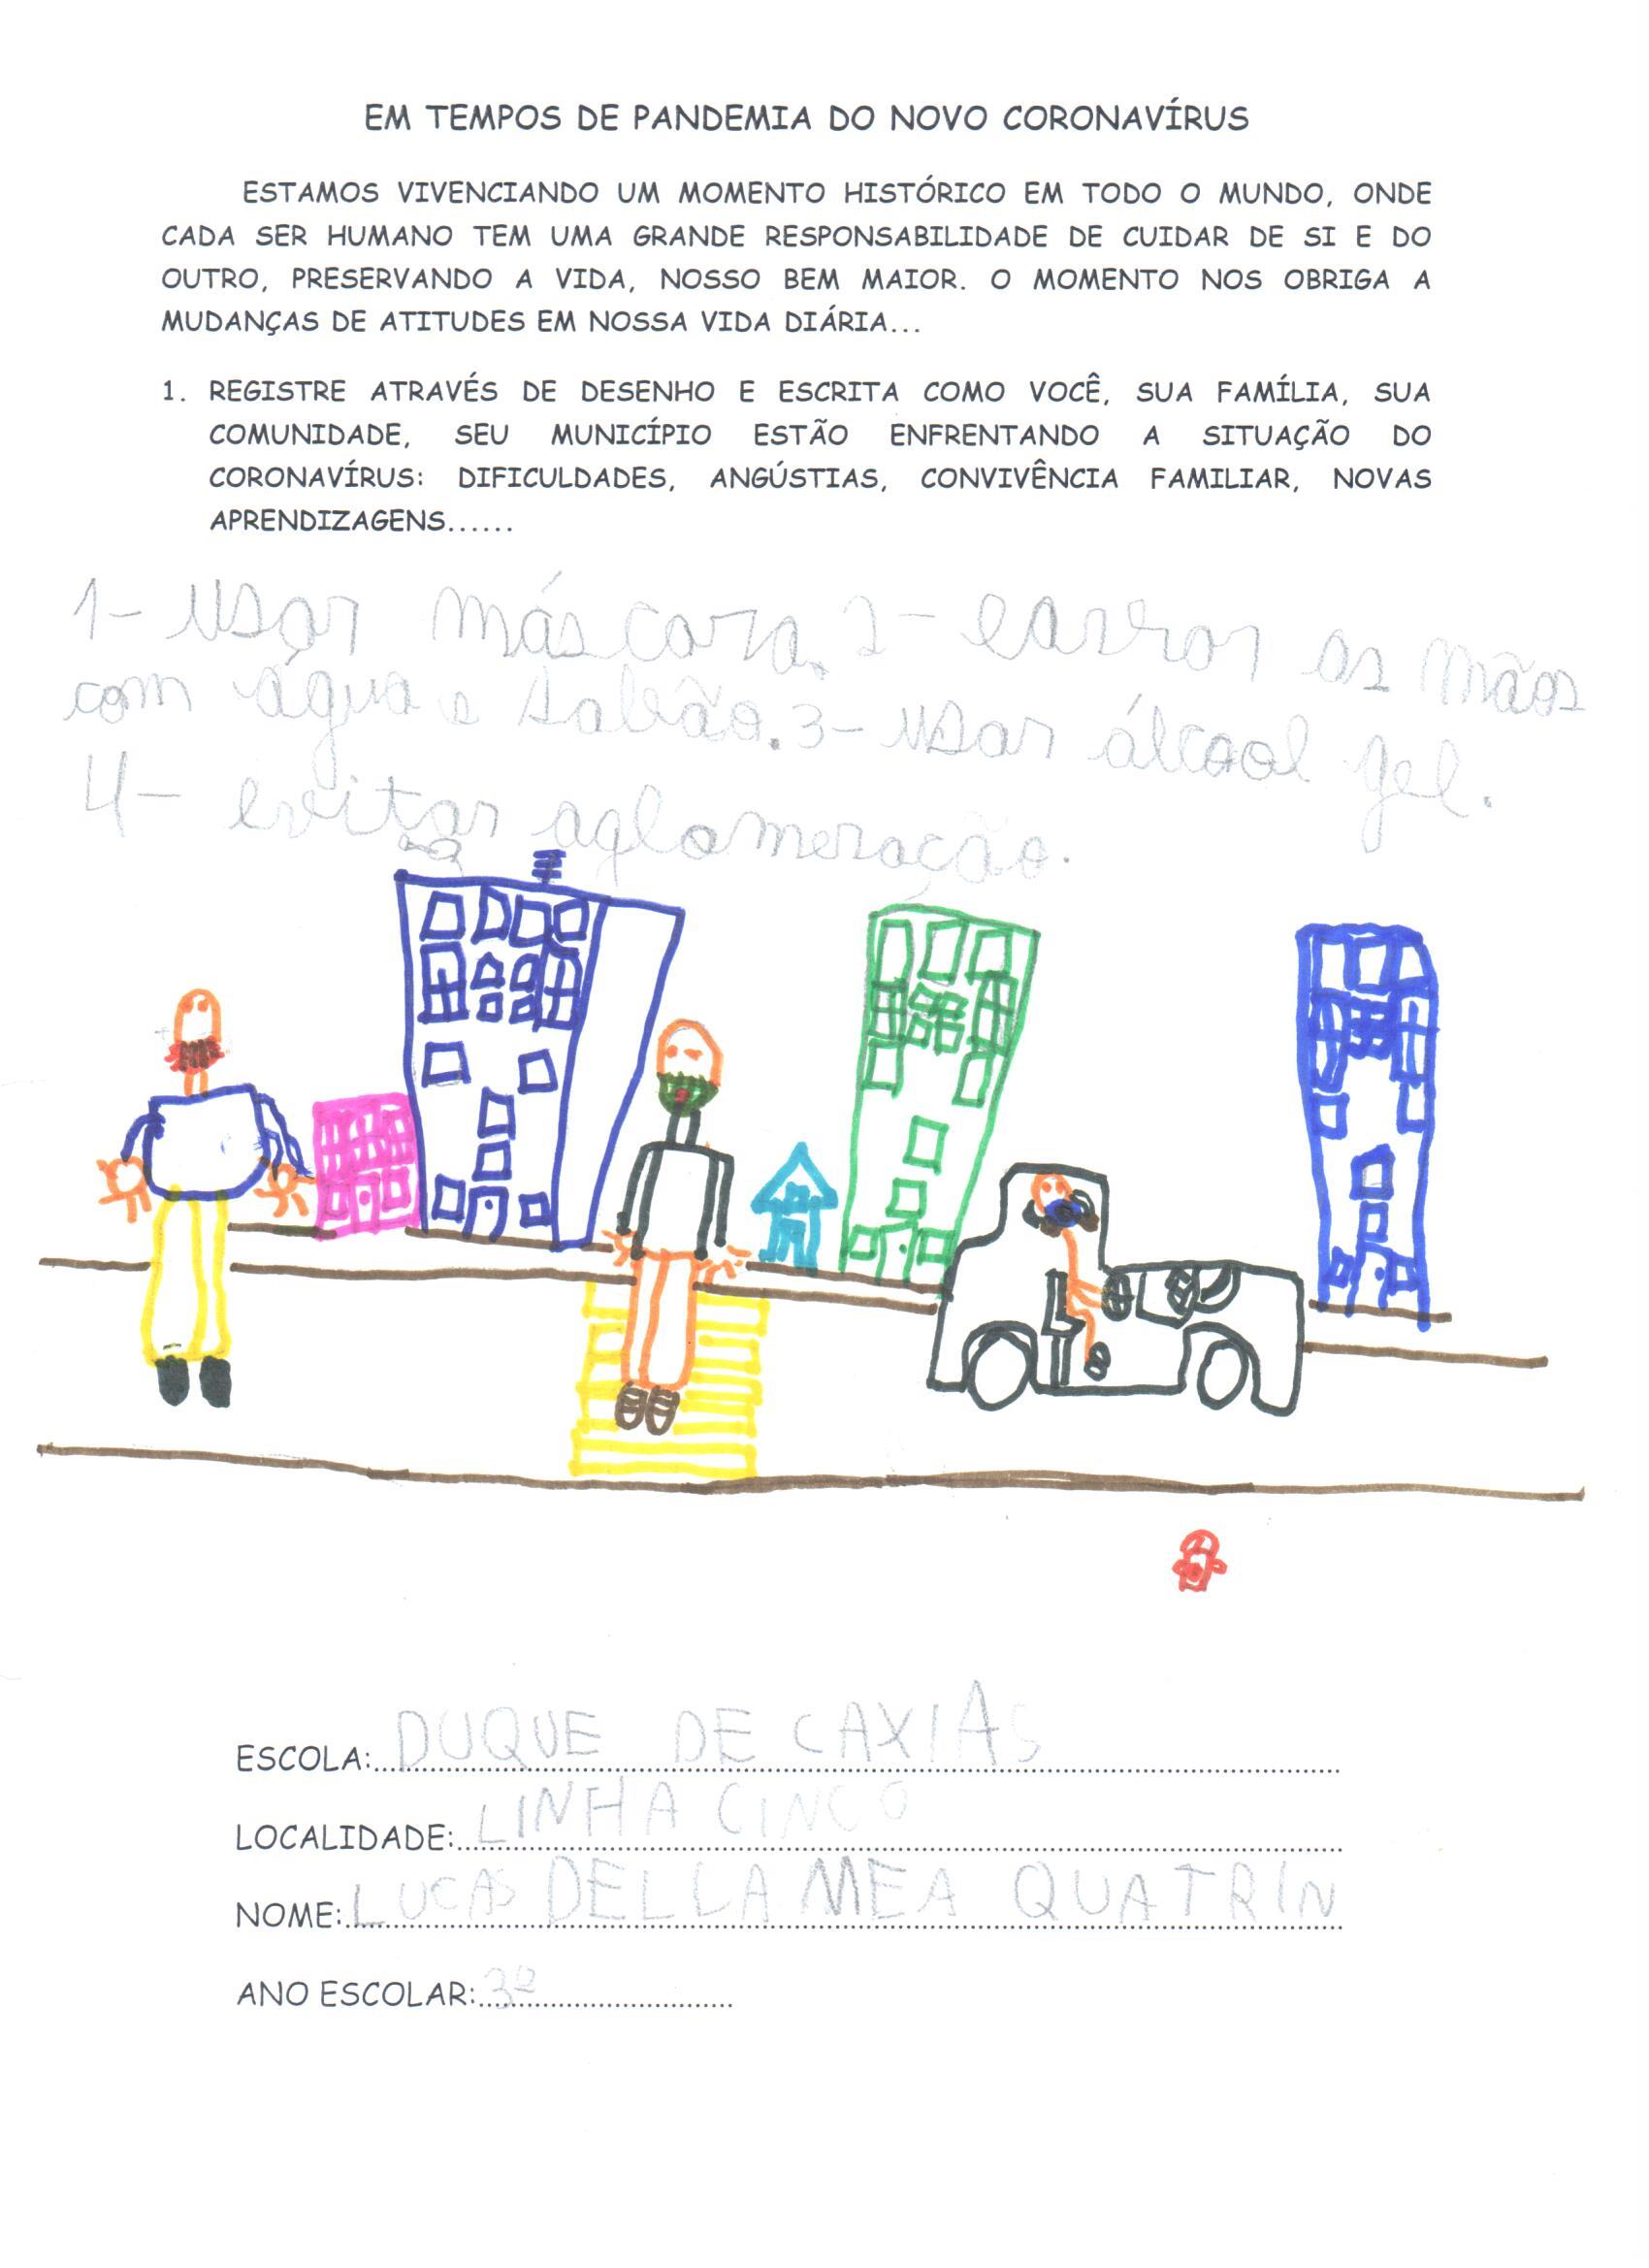 EM TEMPOS DE PANDEMIA DO NOVO CORONAVÍRUS
ESTAMOS VIVENCIANDO UM MOMENTO HISTÓRICO EM TODO O MUNDO, ONDE
CADA SER HUMANO TEM UMA GRANDE RESPONSABILIDADE DE CUIDAR DE SI E DO
OUTRO, PRESERVANDO A VIDA, NOSSO BEM MAIOR. O MOMENTO NOS OBRIGA A
MUDANÇAS DE ATITUDES EM NOSSA VIDA DIÁRIA...
1. REGISTRE ATRAVÉS DE DESENHO E ESCRITA COMO VOCÊ, SUA FAMÍLIA, SUA
COMUNIDADE, SEU MUNICÍPIO ESTÃO ENFRENTANDO A SITUAÇÃO DO
CORONAVÍRUS: DIFICULDADES, ANGÚSTIAS, CONVIVÊNCIA FAMILIAR, NOVAS
APRENDIZAGENS......
1- Usar máscara. 2- as mãos
com água e sabão. 3- Usar álcool gel.
4- evitar aglomeração.
ESCOLA: DUQUE DE CAXIAS
LOCALIDADE: LINHA CINCO
NOME: LUCAS DELLA MEA QUATRIN
ANO ESCOLAR: 3º